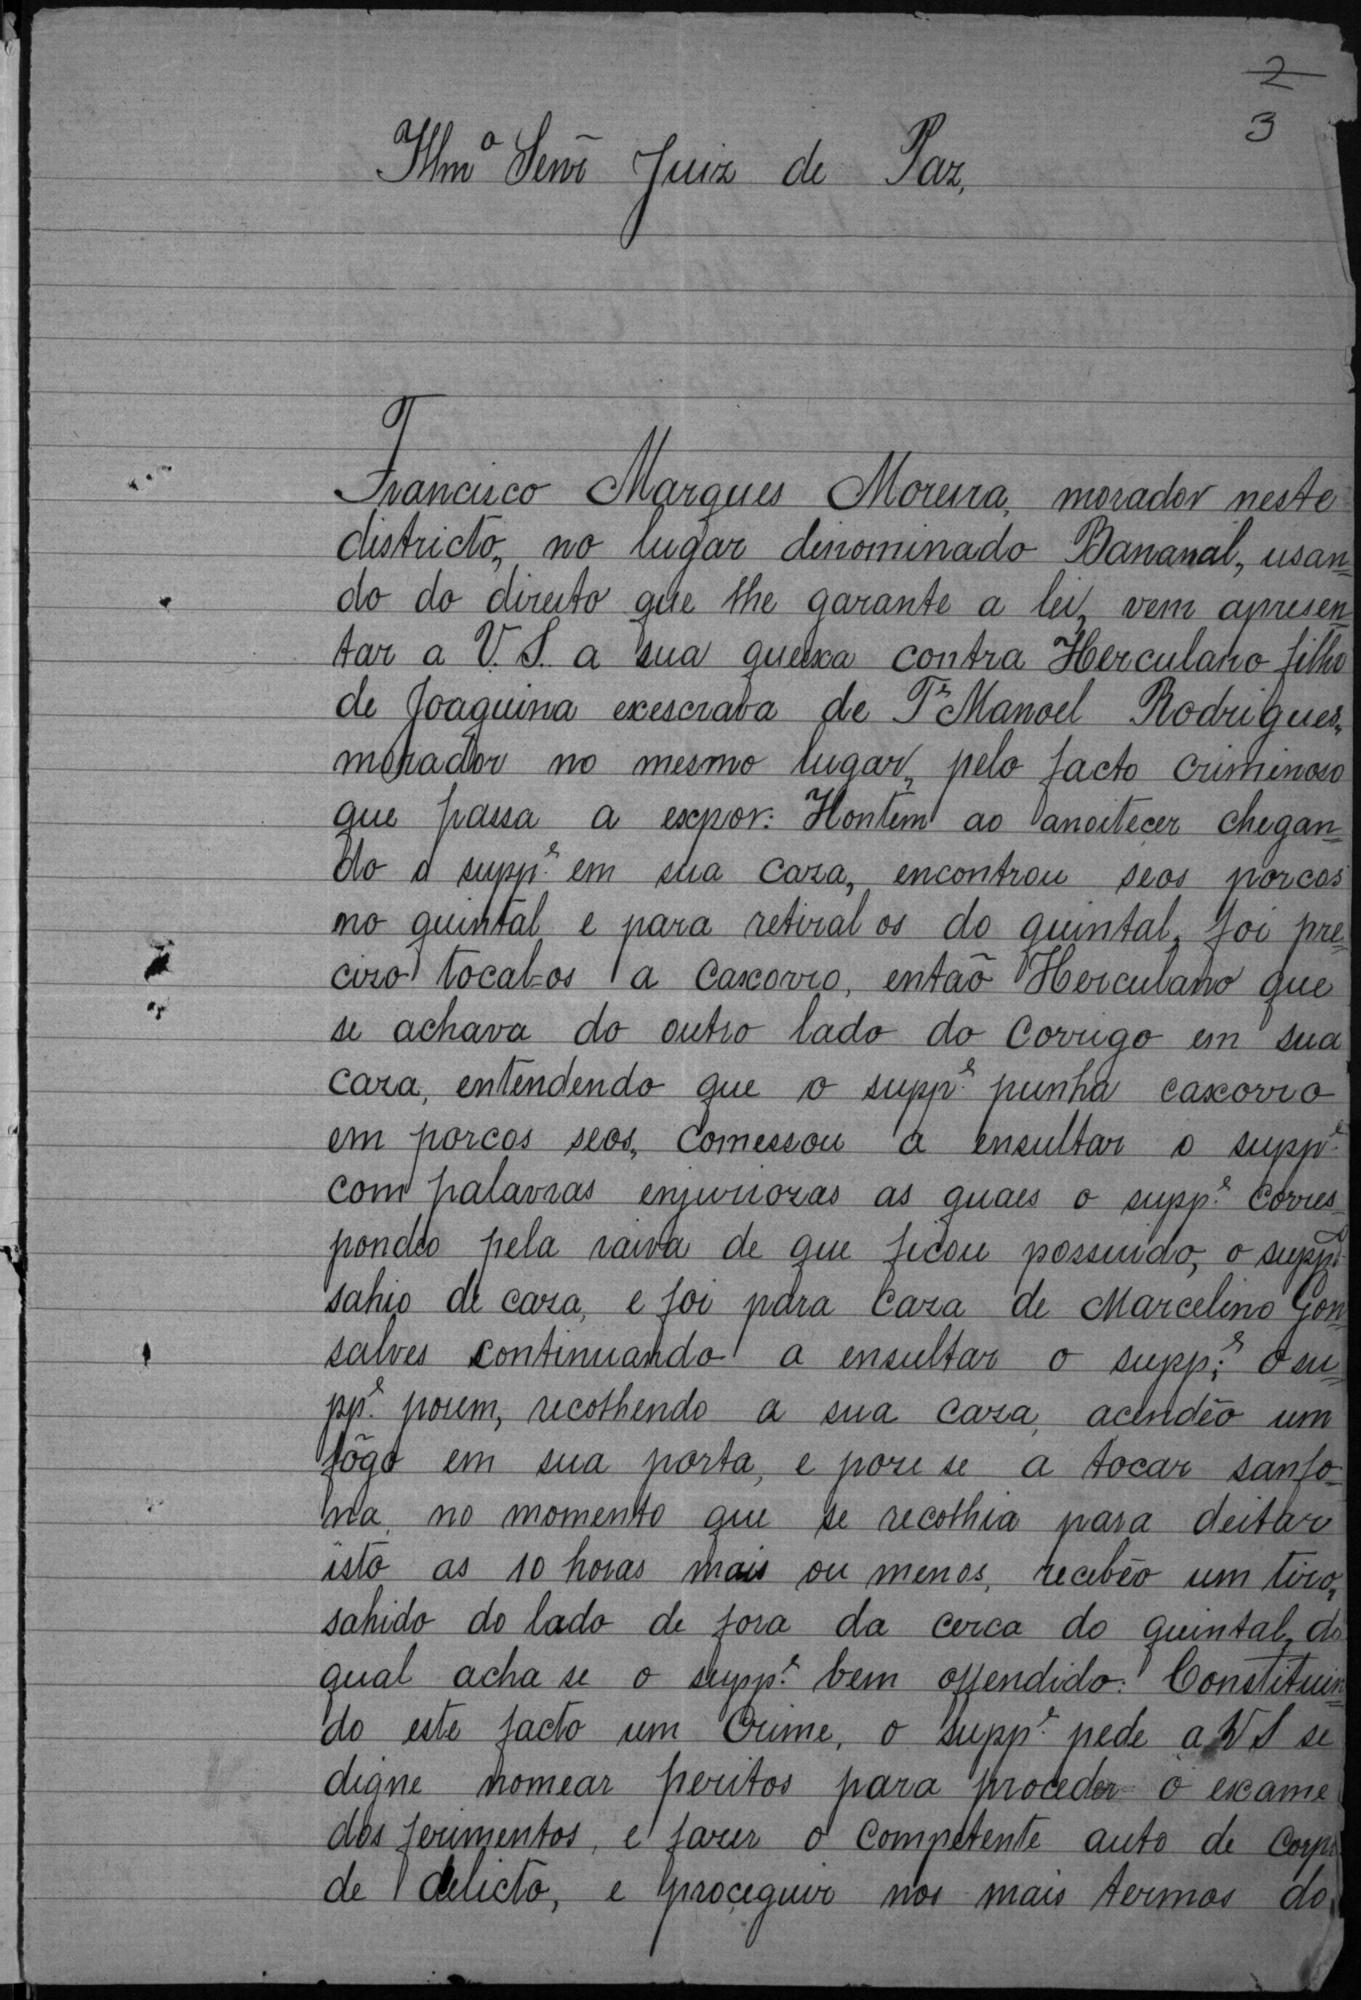 2
3
Illmº Senr̃ Juiz de Paz,
Francisco Marques Moreira, morador neste
districto, no lugar dinominado Bananal, usan=
do do direito que lhe garante a lei, vem apresen=
tar a V. S. a sua queixa contra Herculano filho
de Joaquina exescrava de Manoel Rodrigues,
morador no mesmo lugar, pelo facto criminoso
que passa a expor: Hontem ao anoitecer chegan=
do o suppe. em sua caza, encontrou seos porcos
no quintal e para retiral os do quintal, foi pre=
cizo tocal-os a caxorro, então Herculano que
se achava do outro lado do corrigo em sua
caza, entendendo que o suppe. punha caxorro
em porcos seos, comessou a ensultar o suppe.
com palavras enjuriozas as quaes o suppe. corres=
pondeo pela raiva de que ficou possuido, o suppdo.
sahio de caza, e foi para caza de Marcelino Gon=
salves continuando a ensultar o suppe; o su=
ppe. porem, recolhendo a sua caza, acendêo um
fôgo em sua porta, e poze se a tocar sanfo=
na, no momento que se recolhia para deitar
isto as 10 horas mais ou menos, recebêo um tiro,
sahido do lado de fora da cerca do quintal, do
qual acha se o suppe. bem offendido. Constituin=
do este facto um crime, o suppe. pede a VS se
digne nomear peritos para proceder o exame
dos ferimentos, e fazer o competente auto de corpo
de delicto, e proceguir nos mais termos do